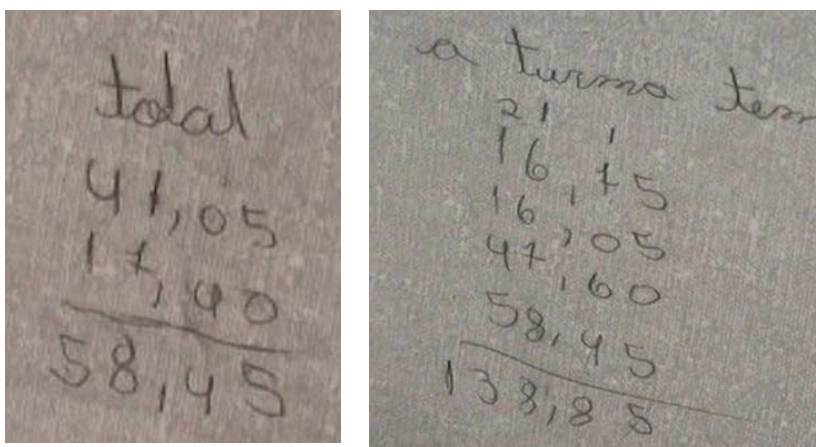 total
41,05
17,40
58,45
a turma tem
21 1
16,75
16,05
47,60
58,45
138,85